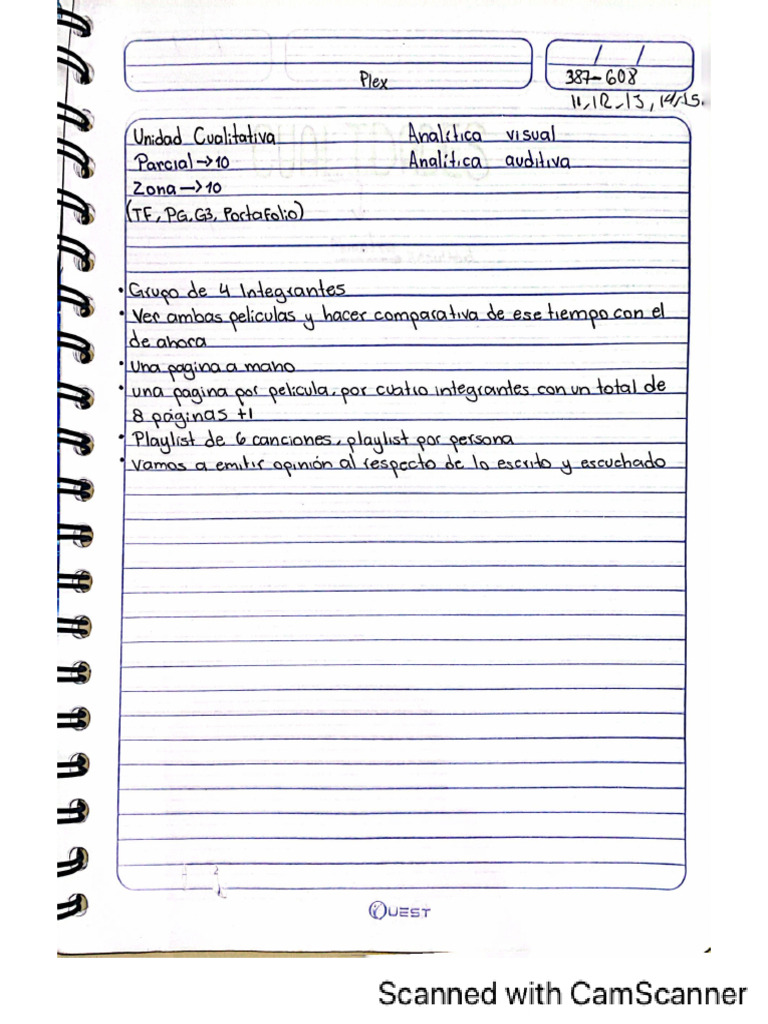 Plex
/ /
387-608
11, 12-13, 14/15.
Unidad Cualitativa Analítica visual
Parcial → 10 Analítica auditiva
Zona → 10
(TF, PG, G3, Portafolio)
• Grupo de 4 Integrantes
• Ver ambas peliculas y hacer comparativa de ese tiempo con el
de ahora
• Una pagina a mano
• una pagina por pelicula, por cuatro integrantes con un total de
8 páginas +1
• Playlist de 6 canciones, playlist por persona
• Vamos a emitir opinión al respecto de lo escrito y escuchado
QUEST
Scanned with CamScanner